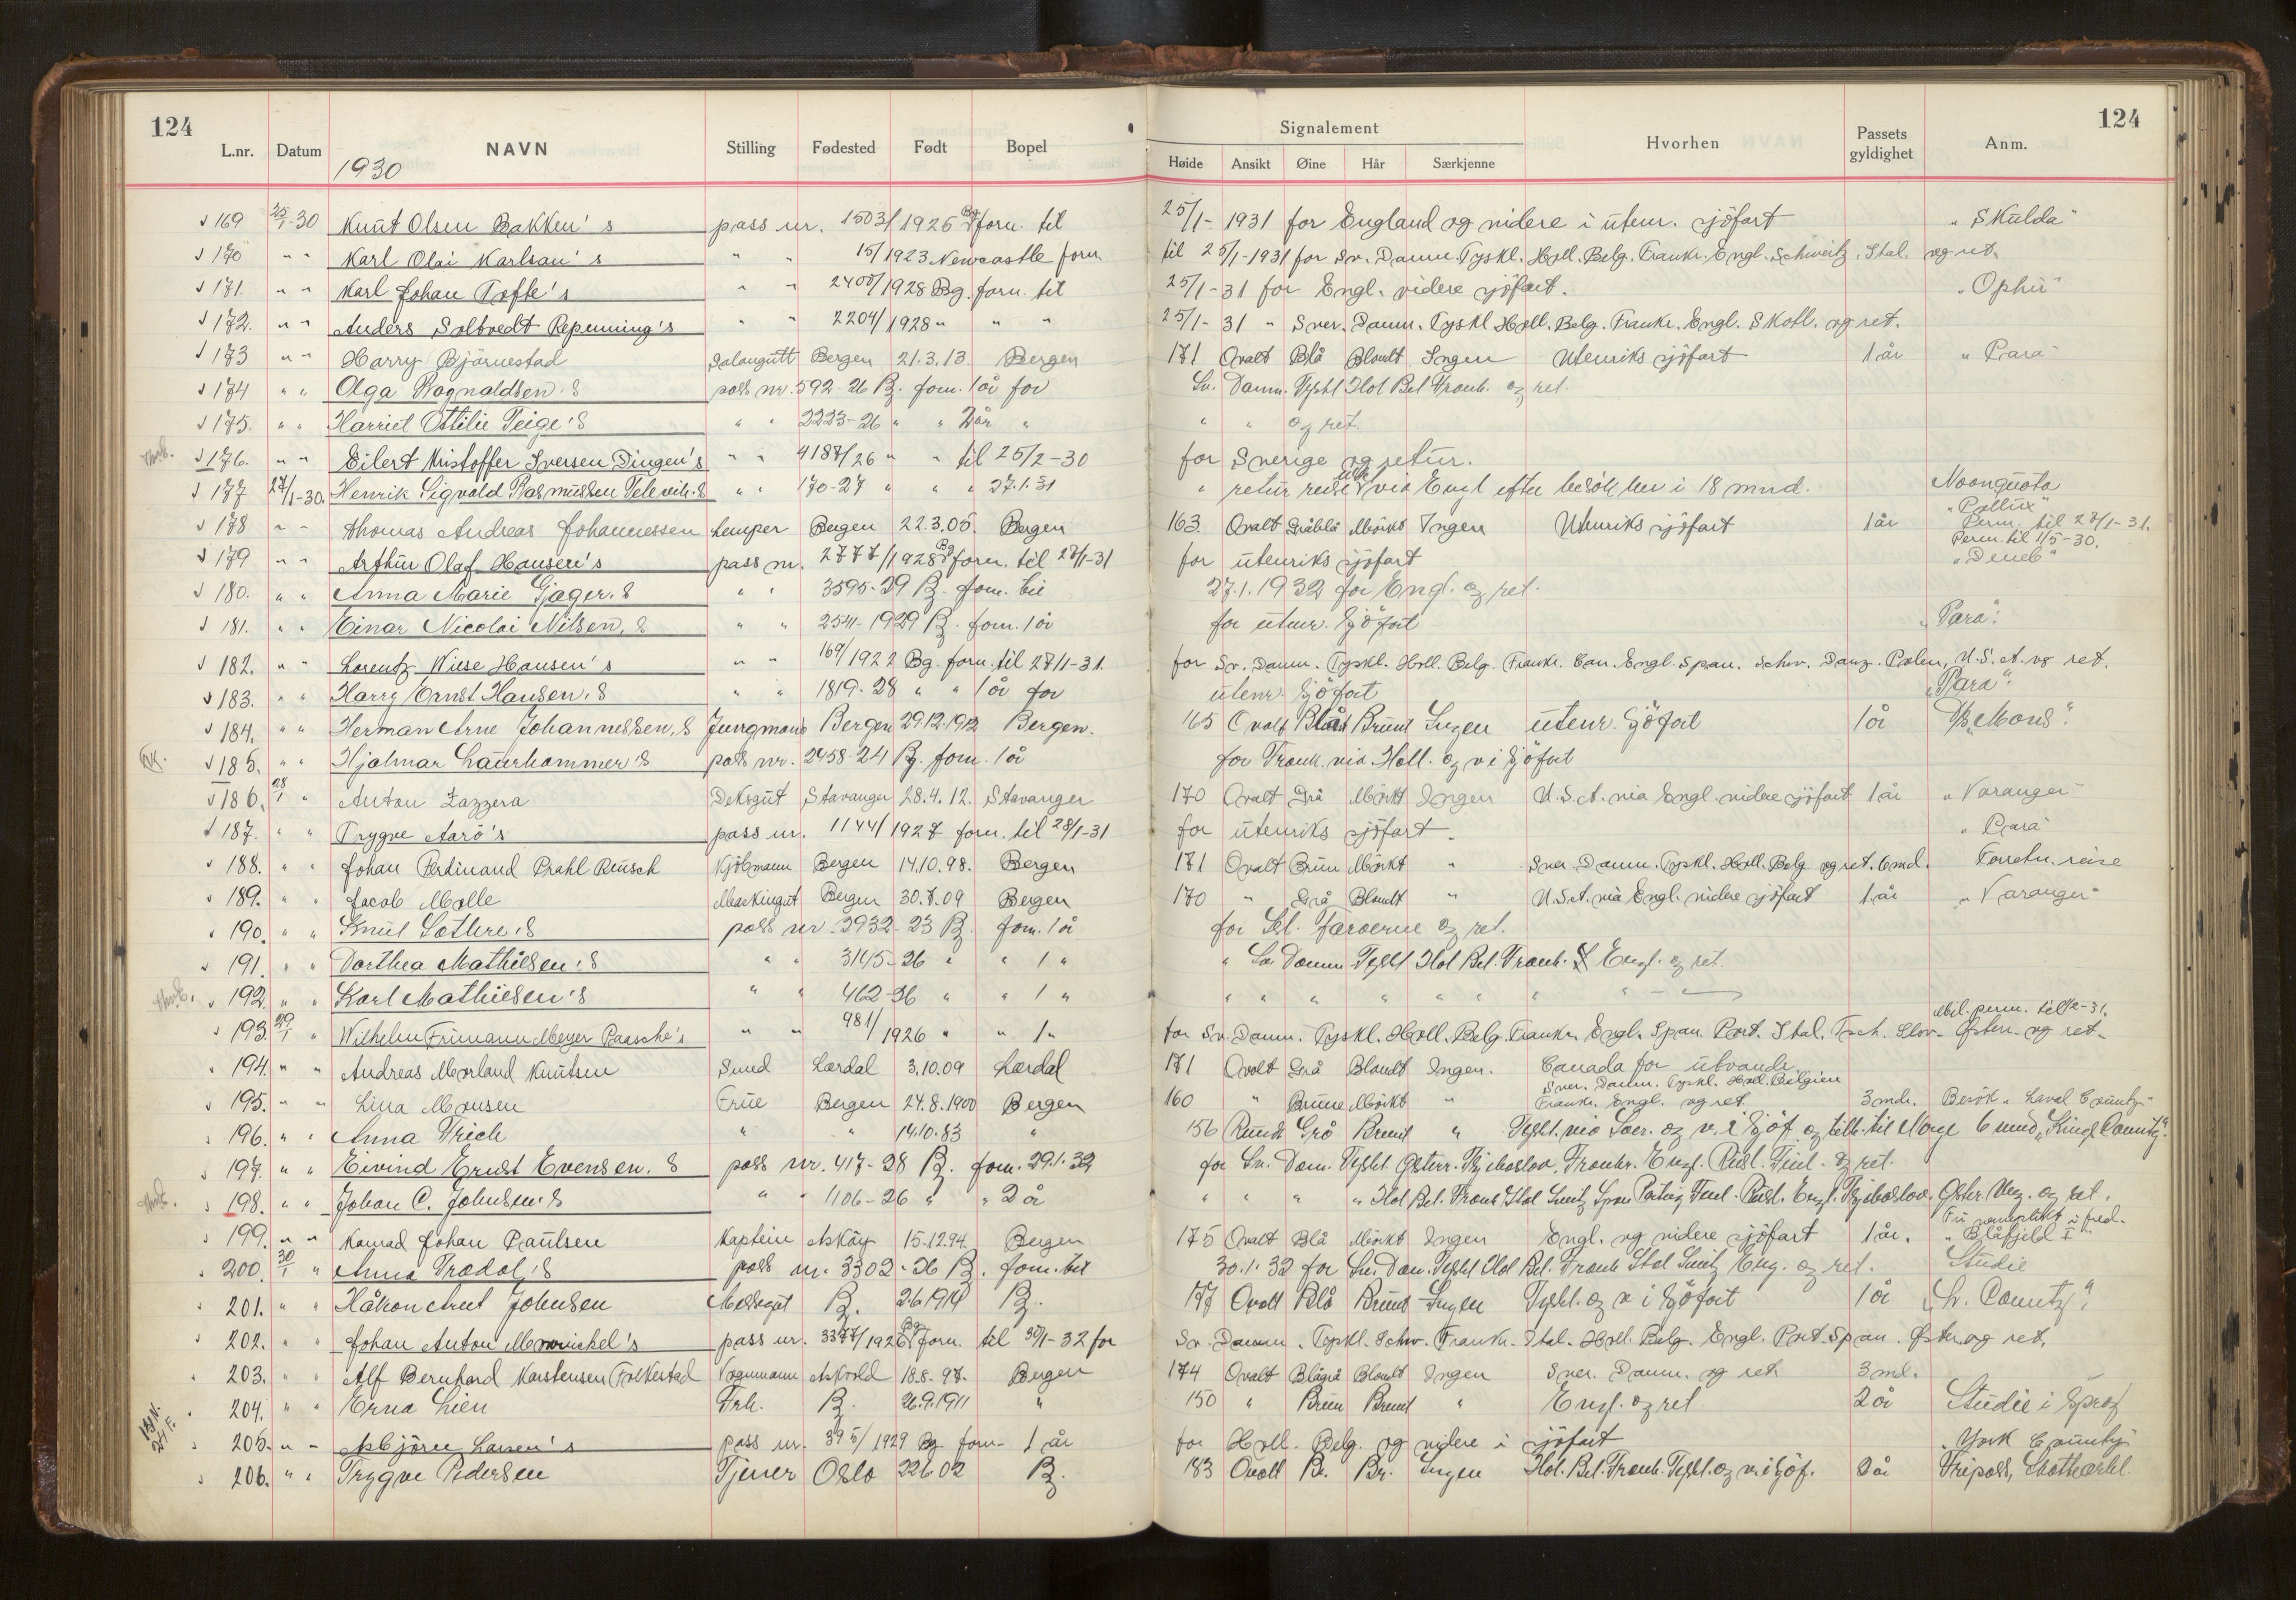 124
124
Signalement
L.nr. Datum NAVN Stilling Fødested Født Bopel Høide Ansikt Øine Hår Særkjenne Hvorhen Passets gyldighet Anm.
1930
169 25/1-30 Knut Olsen Bakken's pass nr. 1503/1926 Bg forn. til 25/1-1931 for England og videre i utenr. sjöfart "Skulda"
170 " " Karl Olai Karlsen's " " 15/1923 Newcastle forn. til 25/1-1931 for Sv. Danm. Tyskl. Holl. Belg. Frankr. Engl. Schweitz. Ital. og ret.
171 " " Karl Johan Tofte's " " 2400/1928 Bg. forn. til 25/1-31 for Engl. videre sjöfart. "Ophir"
172. " " Anders Soltvedt Repenning's " " 2204/1928 " " " 25/1-31 " Sver. Danm. Tyskl Holl. Belg. Frankr. Engl. Skotl. og ret.
173 " " Harry Bjørnestad Salongutt Bergen 21.3.13. Bergen 171 Ovalt Blå Blondt Ingen Utenriks sjöfart 1 år "Para"
174 " " Olga Ragnaldsen:s pass nr. 592-26 B. forn. 1 år for Sv. Danm. Tyskl Hol Bel Frank. og ret.
175. " " Harriet Ottilie Teige:s " " 2223-26 " " 2 år " " " og ret.
176. " " Eilert Kristoffer Iversen Dingen's " " 4187/26 " " til 25/2-30 for Sverige og retur.
177 27/1-30. Henrik Sigvald Rasmussen " " 170-27 " " " 27.1.31 " retur reise via Engl efter besök her i 18 mnd. Noonguota
178 " " Thomas Andreas Johannessen Lemper Bergen 22.3.05. Bergen 163 Ovalt Gråblå Mörkt Ingen Utenriks sjöfart 1 år "Pollux" Perm. til 27/1-31.
179 " " Arthur Olaf Hansen's pass nr. 2777/1928 Bg forn. til 27/1-31 for utenriks sjöfart Perm. til 1/5-30. "Deneb"
180. " " Anna Marie Gjager:s " " 3595-29 B. forn. til 27.1.1932 for Engl. og ret.
181. " " Einar Nicolai Nilsen,s " " 2541-1929 B. forn. 1 år for utenr. Sjöfart "Para".
182. " " Lorentz Wiese Hansen's " " 169/1922 Bg. forn. til 27/1-31. for Sv. Danm. Tyskl. Holl. Belg. Frankr. Can. Engl. Span. Schw. Danz. Polen, U.S.A. og ret.
183. " " Harry Ernst Hansen:s " " 1819-28 " " 1 år for utenr Sjöfart "Para".
184. " " Herman Arne Johannessen,s Jungmand Bergen 29.12.1912 Bergen. 165 Ovalt Blå Brunt Ingen utenr. Sjöfart 1 år D/S "Mons".
185. " " Hjalmar Laurhammer:s pass nr. 2458-24 B. forn. 1 år for Frank. via Holl. og v i Sjöfart
186. 28/1 " Anton Zazzera Deksgut Stavanger 28.4.12. Stavanger 170 Ovalt Grå Mörkt Ingen U.S.A. via Engl. videre sjöfart 1 år "Varanger"
187. " " Trygve Aarö's pass nr. 1144/1927 forn. til 28/1-31 for utenriks sjöfart. "Para"
188. " " Johan Ferdinand Prahl Reusch Kjöbmann Bergen 14.10.98. Bergen 171 Ovalt Brun Mörkt " Sver. Danm. Tyskl. Holl. Belg og ret. 6 md. Forretn. reise
189. " " Jacob Molle Maskingut Bergen 30.7.09 Bergen 170 " Grå Blondt " U.S.A. via Engl. videre sjöfart 1 år "Varanger"
190. " " Knut Sathre:s pass nr. 2932-23 B. forn. 1 år for Isl. Færoerne og ret.
191. " " Dorthea Mathilsen:s " " 3145-26 " " 1 " " Sv. Danm Tyskl Hol Bel. Frank. Engl. og ret.
192. " " Karl Mathiesen:s " " 462-26 " " 1 " " " " " " " " "
193. 29/1 " Wilhelm Frimann Meyer Paasche's " " 981/1926 " " 1 " for Sv. Danm. Tyskl. Holl. Belg. Frankr. Engl. Span. Port. Ital. Tsch. Slov. Östen. og ret. Mil. perm. til 1/2-31.
194. " " Andreas Morland Knutsen Smed Lærdal 3.10.09 Lærdal 171 Ovalt Grå Blondt Ingen. Canada for utvandr.
195. " " Lina Monsen Frue Bergen 24.8.1900 Bergen 160 " Brune Mörkt " Sver. Danm. Tyskl. Holl. Belgien Frankr. Engl. og ret. 3 md. Besök
196. " " Anna Frich " " 14.10.83 " 156 Rundt Grå Brunt " Tyskl. via Sver. og v. i Sjöf og tilb. til Norge 6 mnd "Kings County".
197. " " Eivind Ernst Evensen.s pass nr. 417-28 B. forn. 29.1.32 for Sv. Danm. Tyskl. Österr. Tjekoslov. Frankr. Engl. Rusl. Finl. og ret.
198. " " Johan C. Johnsen:s " " 1106-26 " " 2 år " " " " Hol Bel. Frank Ital Sveitz Span Portug Finl. Rusl. Engl. Tjekoslov. Öster Ung. og ret.
199. " " Konrad Johan Paulsen Kaptein Asköy 15.12.94. Bergen 175 Ovalt Blå Mörkt Ingen Engl. og videre sjöfart 1 år. "Blåfjeld I"
200. 30/1 " Anna Trædal:s pass nr. 3302-26 B. forn. til 30.1.32 for Sv. Dan. Tyskl Hol Bel. Frank Ital Sveitz Eng. og ret. Studie
201. " " Håkon Arnt Johnsen Messegut B. 2.6.1914 B. 177 Ovalt Blå Brunt Ingen Tyskl. og v i Sjöfart 1 år
202. " " Johan Anton pass nr. 3377/1926 Bg forn. til 30/1-32 for Sv. Danm. Tyskl. Schw. Frankr. Ital. Holl. Belg. Engl. Port. Span. Öster. og ret.
203. " " Alf Bernhard Karstensen Folkestad Vognmann Askvold 18.8.97. Bergen 174 Ovalt Blågrå Blondt Ingen Sver. Danm. og ret. 3 md.
204. " " Erna Lien Frk. B. 26.9.1911 " 150 " Brun Brunt " Engl. og ret 2 år Studie i Sprog
205. " " Asbjörn Larsen's pass nr. 395/1929 Bg. forn. 1 år for Holl. Belg. og videre i sjöfart "York County"
206. " " Trygve Pedersen Tjener Oslo 22.6.02 B. 183 Ovalt Br. Br. Ingen Hol. Bel. Frank. Tyskl. og v. i Sjöf. 2 år